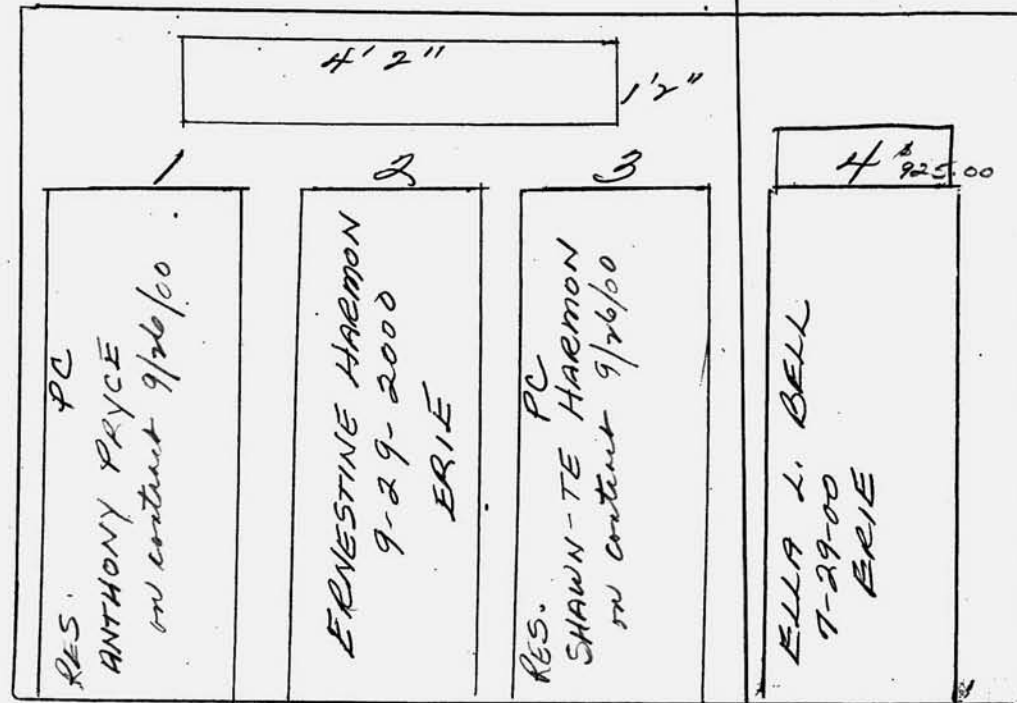 4' 2"
1' 2"
1
2
3
4 $925.00
RES. PC
ANTHONY PRYCE
on contract 9/26/00
ERNESTINE HARMON
9-29-2000
ERIE
RES. PC
SHAWN-TE HARMON
on contract 9/26/00
ELLA L. BELL
7-29-00
ERIE